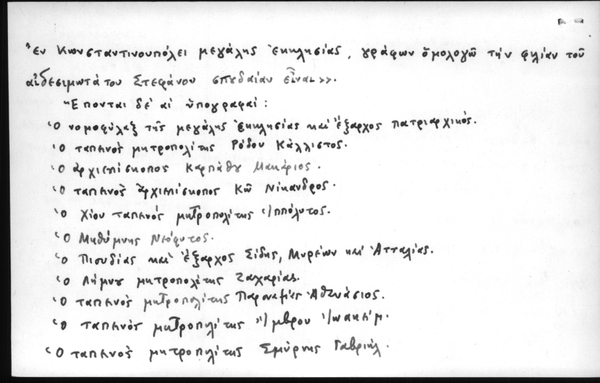 Ἐν Κωνσταντινουπόλει μεγάλης Ἐκκλησίας, γράφων ὁμολογῶ τὴν φιλίαν τοῦ
αἰδεσιμωτάτου Στεφάνου σπυδαίαν εἶναι>>.
Ἕπονται δὲ αἱ ὑπογραφαί:
Ὁ νομοφύλαξ τῆς μεγάλης Ἐκκλησίας καὶ ἔξαρχος πατριαρχικός.
Ὁ ταπεινὸς μητροπολίτης Ρόδου Κάλλιστος.
Ὁ ἀρχιεπίσκοπος Καρπάθου Μακάριος.
Ὁ ταπεινὸς ἀρχιεπίσκοπος Κῶ Νίκανδρος.
Ὁ Χίου ταπεινὸς μητροπολίτης Ἱππόλυτος.
Ὁ Μηθύμνης Νεόφυτος.
Ὁ Πισιδίας καὶ ἔξαρχος Σίδης, Μυρέων καὶ Ἀτταλίας.
Ὁ Λήμνου μητροπολίτης Ζαχαρίας.
Ὁ ταπεινὸς μητροπολίτης Παροναξίας Ἀθανάσιος.
Ὁ ταπεινὸς μητροπολίτης Ἴμβρου Ἰωακείμ.
Ὁ ταπεινὸς μητροπολίτης Σμύρνης Γαβριήλ.